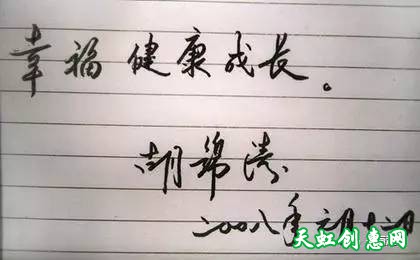 幸福 健康成长。
胡锦涛
二00八年 月
天虹创惠网